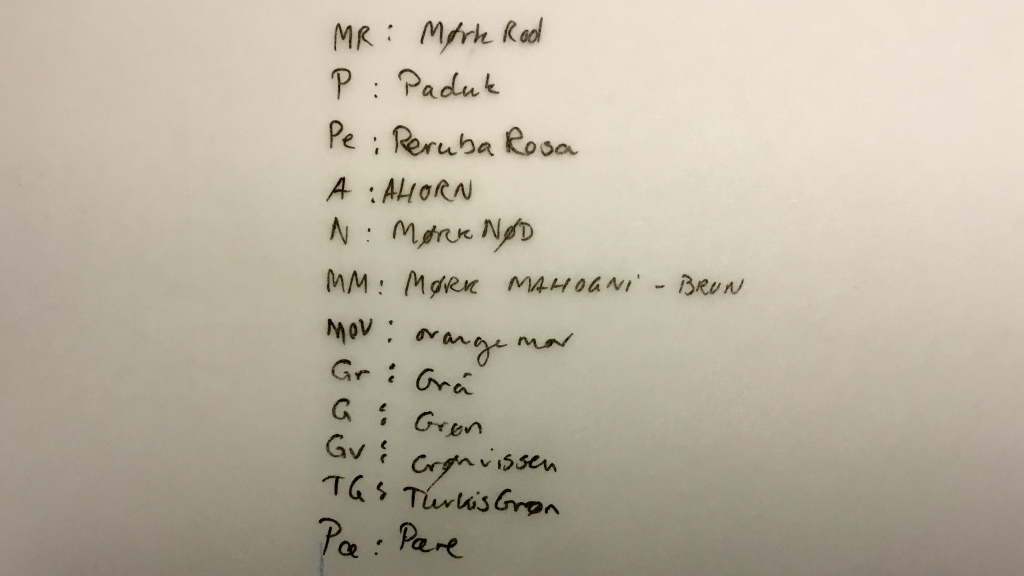 MR: Mørk Rød
P: Paduk
Pe: Peruba Rosa
A: AHORN
N: MØRK NØD
MM: MØRK MAHOGNI - BRUN
MOV: orange mov
Gr: Grå
G: Grøn
Gv: Grønvissen
TG: TurkisGrøn
Pæ: Pære